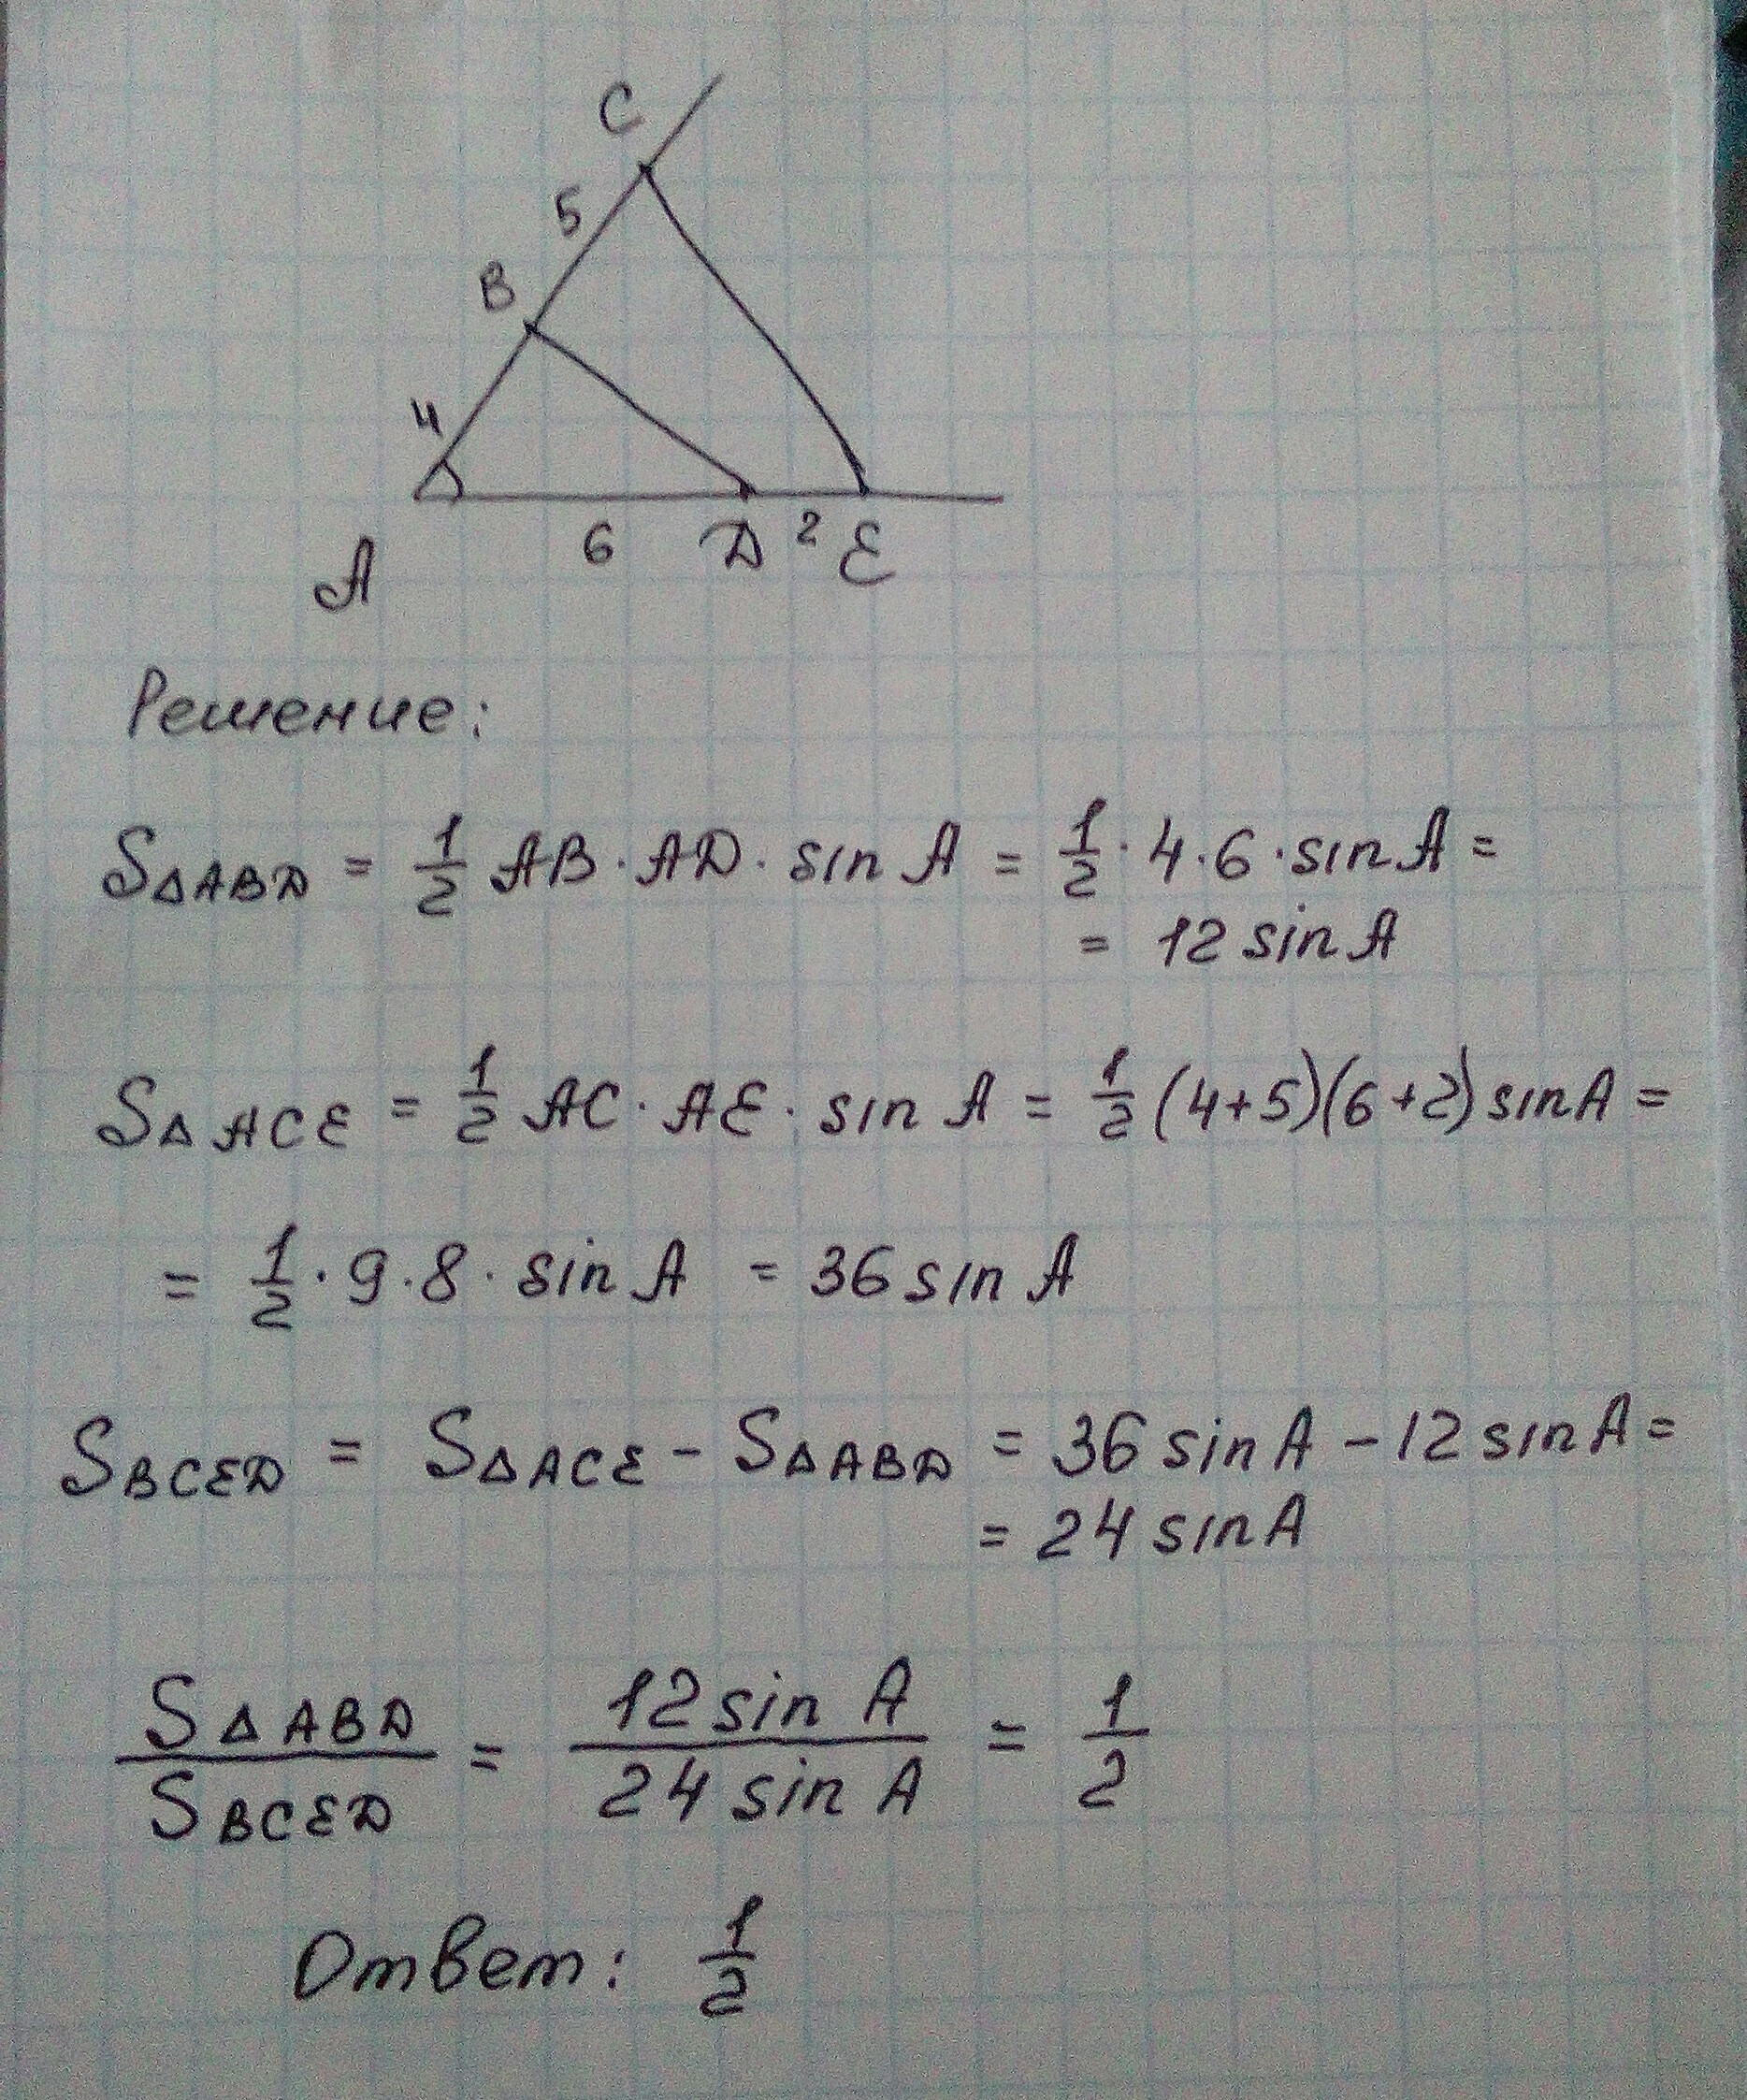 C
5
B
4
A 6 D 2 E
Решение:
S△ABD = 1/2 AB · AD · sin A = 1/2 · 4 · 6 · sin A =
= 12 sin A
S△ACE = 1/2 AC · AE · sin A = 1/2 (4+5)(6+2) sin A =
= 1/2 · 9 · 8 · sin A = 36 sin A
SBCED = S△ACE - S△ABD = 36 sin A - 12 sin A =
= 24 sin A
S△ABD / SBCED = 12 sin A / 24 sin A = 1/2
Ответ: 1/2